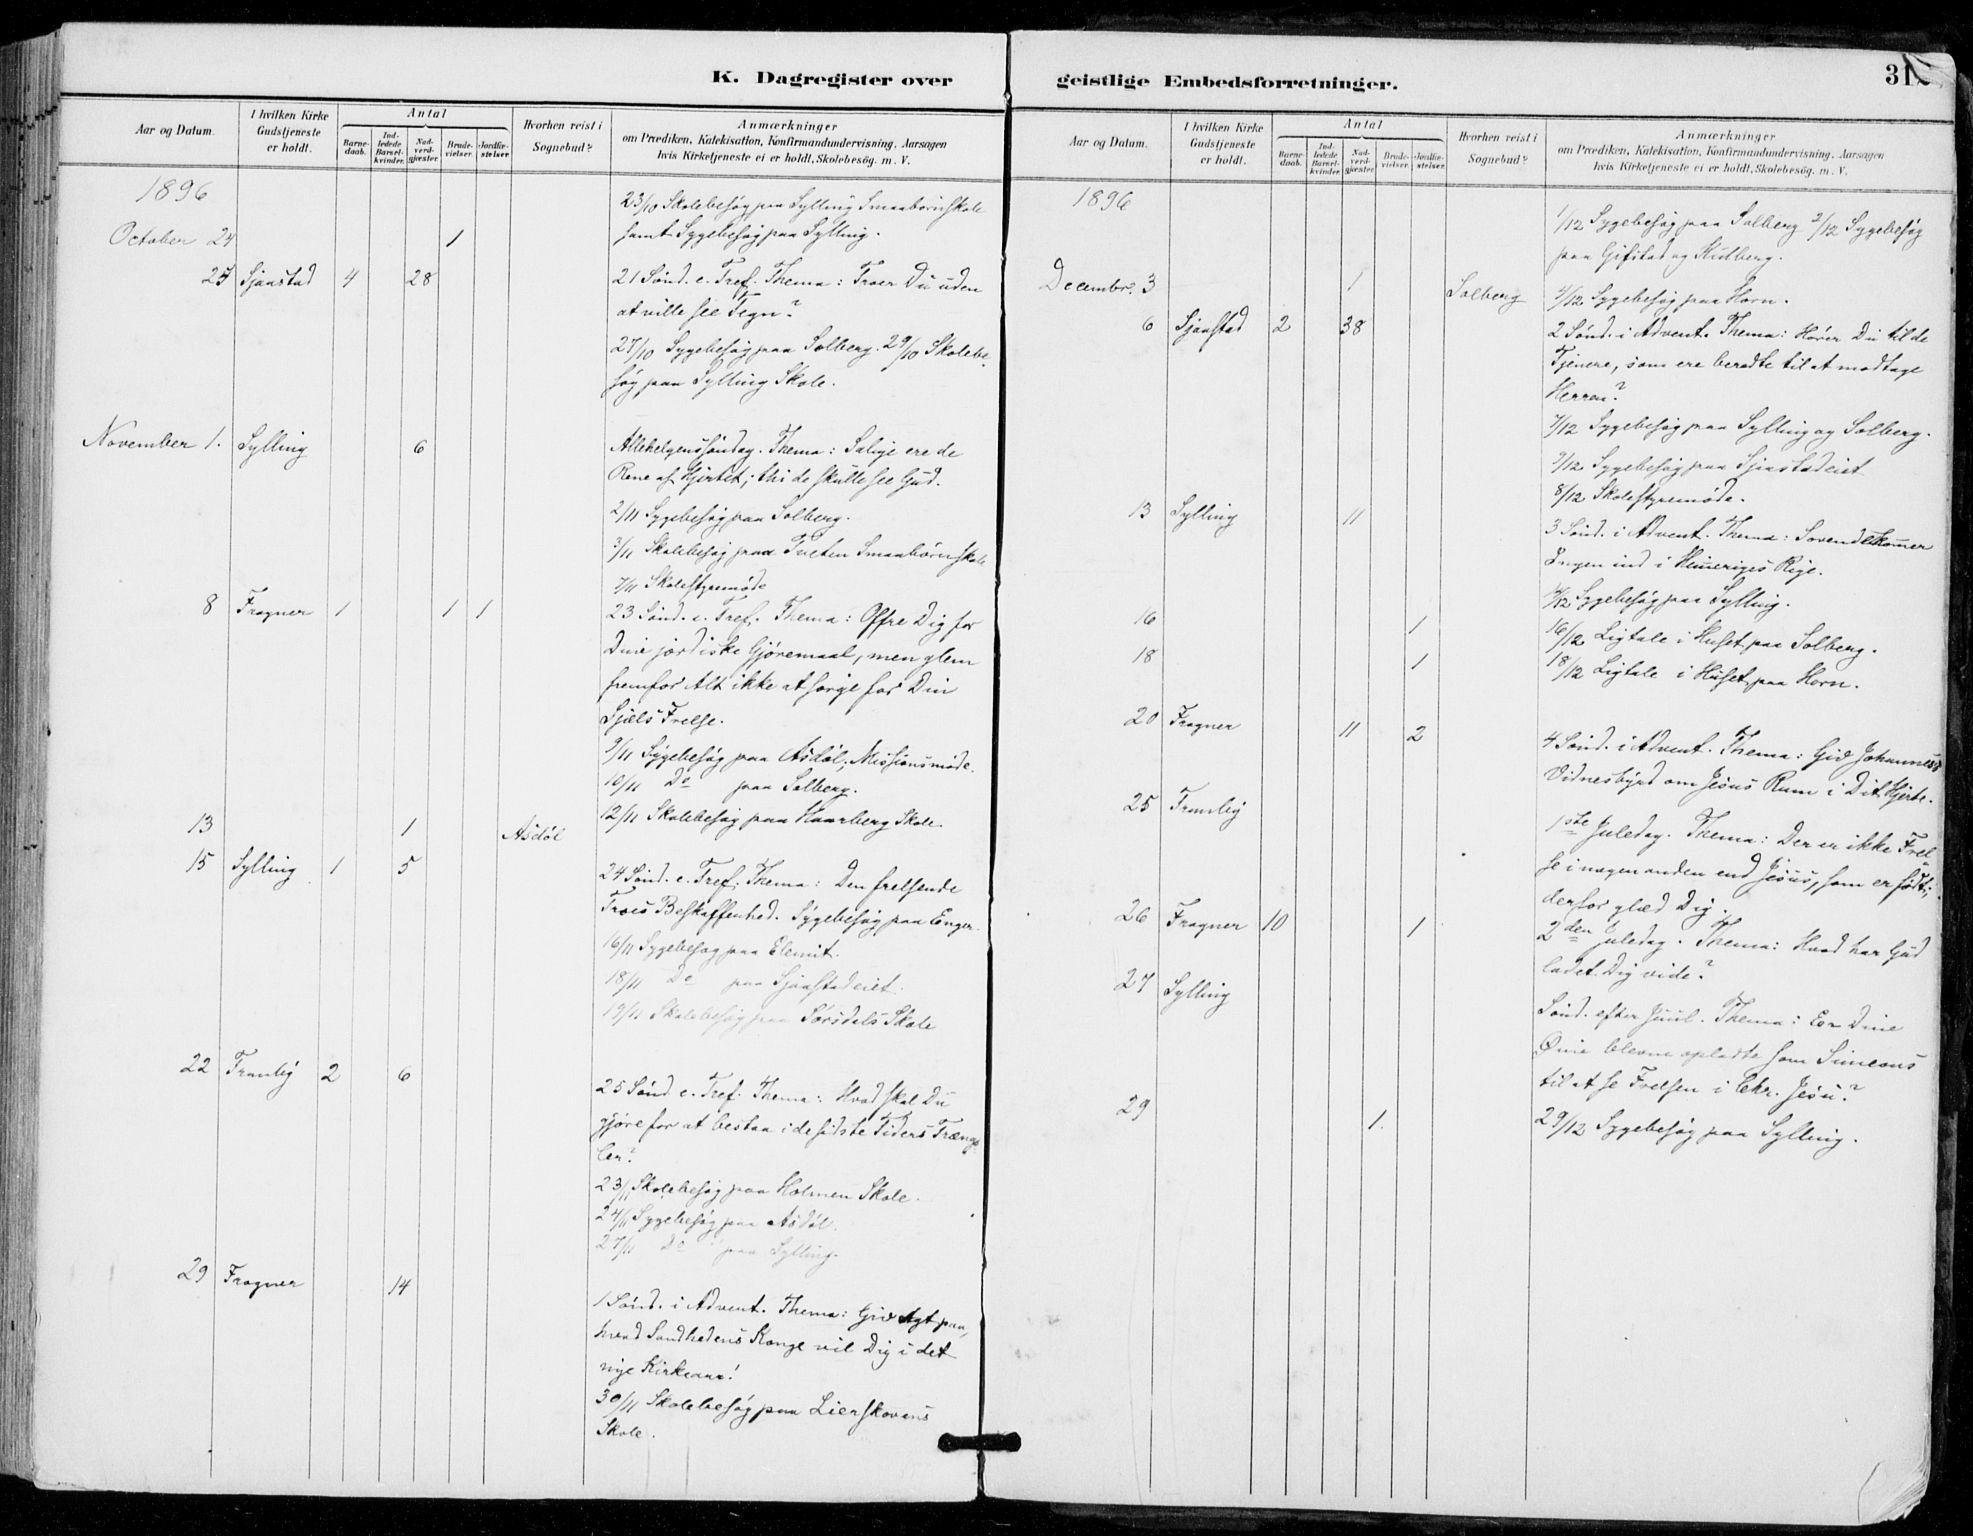 K. Dagregister over
Aar og Datum.
I hvilken Kirke Gudstjeneste er holdt.
Antal
Barnedaab.
Indledede Barselkvinder.
Nadverdgjester.
Brudevielser.
Jordfæstelser.
Hvorhen reist i Sognebud?
Anmærkninger
om Prædiken, Katekisation, Konfirmandundervisning, Aarsagen
hvis Kirketjeneste ei er holdt, Skolebesøg, m. V.
1896
23/10 Skolebesøg paa Sylling Smaabørnskole
October 24 1 samt Sygebesøg paa Sylling.
25 Sjaastad 4 28 21 Sønd. e. Tref. Thema: Troer Du uden
at ville see Tegn?
27/10 Sygebesøg paa Solberg. 29/10 Skolebe-
søg paa Sylling Skole.
November 1. Sylling 6 Allehelgenssøndag. Thema: Salige ere de
Rene af Hjertet; thi de skulle see Gud.
2/11 Sygebesøg paa Solberg.
3/11 Skolebesøg paa Tveten Smaabørnskole
7/11 Skolestyremøde
8 Frogner 1 1 1 23 Sønd. e. Tref. Thema: Offre Dig for
Dine jordiske Gjøremaal, men glem
fremfor Alt ikke at sørge for Din
Sjæls Frelse.
9/11 Sygebesøg paa Asdøl; Missionsmøde.
10/11 Do paa Solberg.
12/11 Skolebesøg paa Haarberg Skole.
13 1 Asdøl
15 Sylling 1 5 24 Sønd. e. Tref: Thema: Den frelsende
Troes Beskaffenhed. Sygebesøg paa Enger.
16/11 Sygebesøg paa
18/11 Do paa Sjaastadeiet.
19/11 Skolebesøg paa Sørsdals Skole
22 Tranby 2 6 25 Sønd. e. Tref: Thema: Hvad skal Du
gjøre for at bestaa i de sidste Tiders Trængs-
ler?
23/11 Skolebesøg paa Holmen Skole.
24/11 Sygebesøg paa Asdøl.
27/11 Do paa Sylling.
29 Frogner 14 1 Sønd. i Advent. Thema: Giv Agt paa,
hvad Sandhedens Konge vil Dig i det
nye Kirkeaar!
30/11 Skolebesøg paa Lierskovens
Skole.
geistlige Embedsforretninger.
31
Aar og Datum.
I hvilken Kirke Gudstjeneste er holdt.
Antal
Barnedaab.
Indledede Barselkvinder.
Nadverdgjester.
Brudevielser.
Jordfæstelser.
Hvorhen reist i Sognebud?
Anmærkninger
om Prædiken, Katekisation, Konfirmandundervisning, Aarsagen
hvis Kirketjeneste ei er holdt, Skolebesøg, m. V.
1896
1/12 Sygebesøg paa Solberg 2/12 Sygebesøg
paa Gifstad og Hulberg.
Decembr. 3 1 Solberg 4/12 Sygebesøg paa Horn.
6 Sjaastad 2 38 2 Sønd. i Advent. Thema: Hører Du til de
Tjenere, som ere beredte til at modtage
Herren?
7/12 Sygebesøg paa Sylling og Solberg.
9/12 Sygebesøg paa Sjaastadeiet
8/12 Skolestyremøde.
13 Sylling 11 3 Sønd. i Advent. Thema: Sovende kommer
Ingen ind i Himeriges Rige.
Sygebesøg paa Sylling.
16 1 16/12 Ligtale i Huset paa Solberg.
18 1 18/12 Ligtale i Huset paa Horn.
20 Frogner 11 2 4 Sønd. i Advent. Thema: Giv Johannes's
Vidnesbyrd om Jesus Rum i Dit Hjerte.
25 Tranby 1ste Juledag. Thema: Der er ikke Frel-
se i nogen anden end Jesus, som er født;
derfor glæd Dig.
26 Frogner 10 1 2den Juledag. Thema: Hvad har Gud
ladet Dig vide?
27 Sylling Sønd. efter Juul. Thema: Ere Dine
Øine blevne opladte som Simeons
til at se Frelsen i Chr. Jesu?
29 1. 29/12 Sygebesøg paa Sylling.